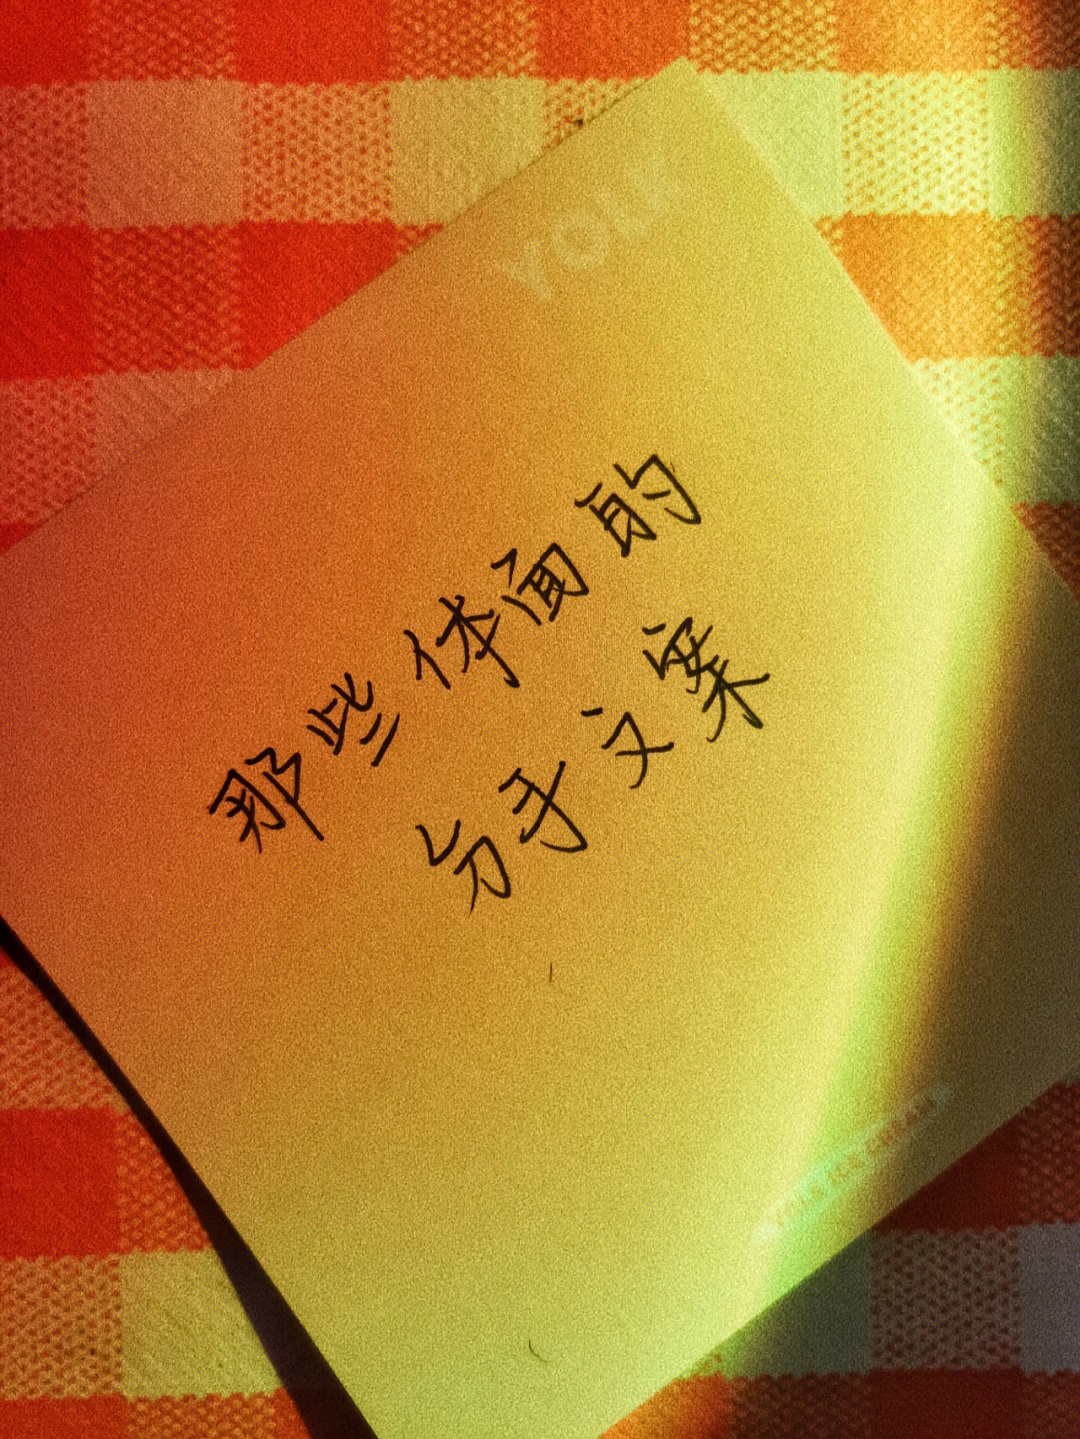 那些体面的
分手文案